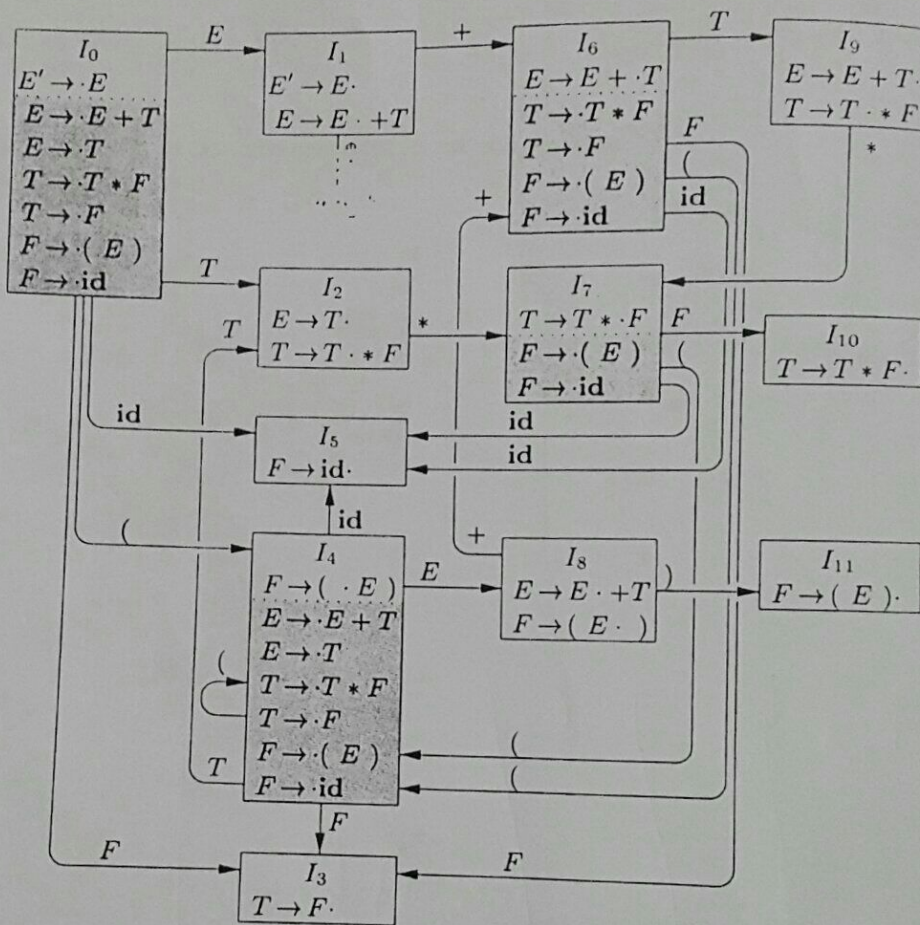 I₀
E' → ·E
E → ·E + T
E → ·T
T → ·T * F
T → ·F
F → ·( E )
F → ·id
E
I₁
E' → E·
E → E · +T
+
I₆
E → E + ·T
T → ·T * F
T → ·F
F → ·( E )
F → ·id
T
I₉
E → E + T·
T → T · * F
*
F
(
id
+
T
I₂
E → T·
T → T · * F
T
*
I₇
T → T * ·F
F → ·( E )
F → ·id
F
(
I₁₀
T → T * F·
id
I₅
F → id·
id
id
id
(
I₄
F → ( · E )
E → ·E + T
E → ·T
T → ·T * F
T → ·F
F → ·( E )
F → ·id
E
+
I₈
E → E · +T
F → ( E · )
)
I₁₁
F → ( E )·
(
(
T
(
F
F
I₃
T → F·
F